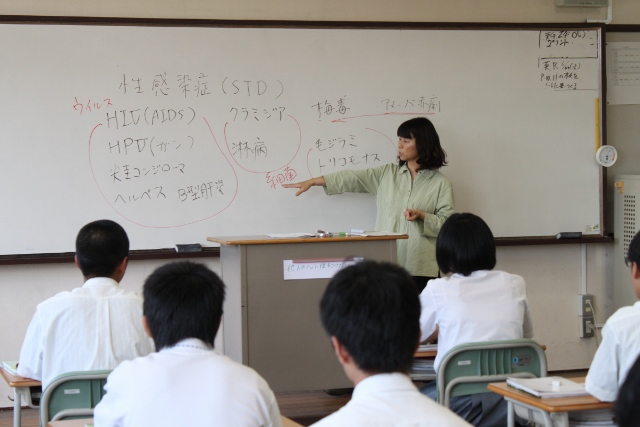 性感染症(STD)
ウイルス
HIV(AIDS)
HPV(ガン)
尖圭コンジローマ
ヘルペス B型肝炎
クラミジア
淋病
細菌
梅毒
アメーバ赤痢
毛ジラミ
トリコモナス